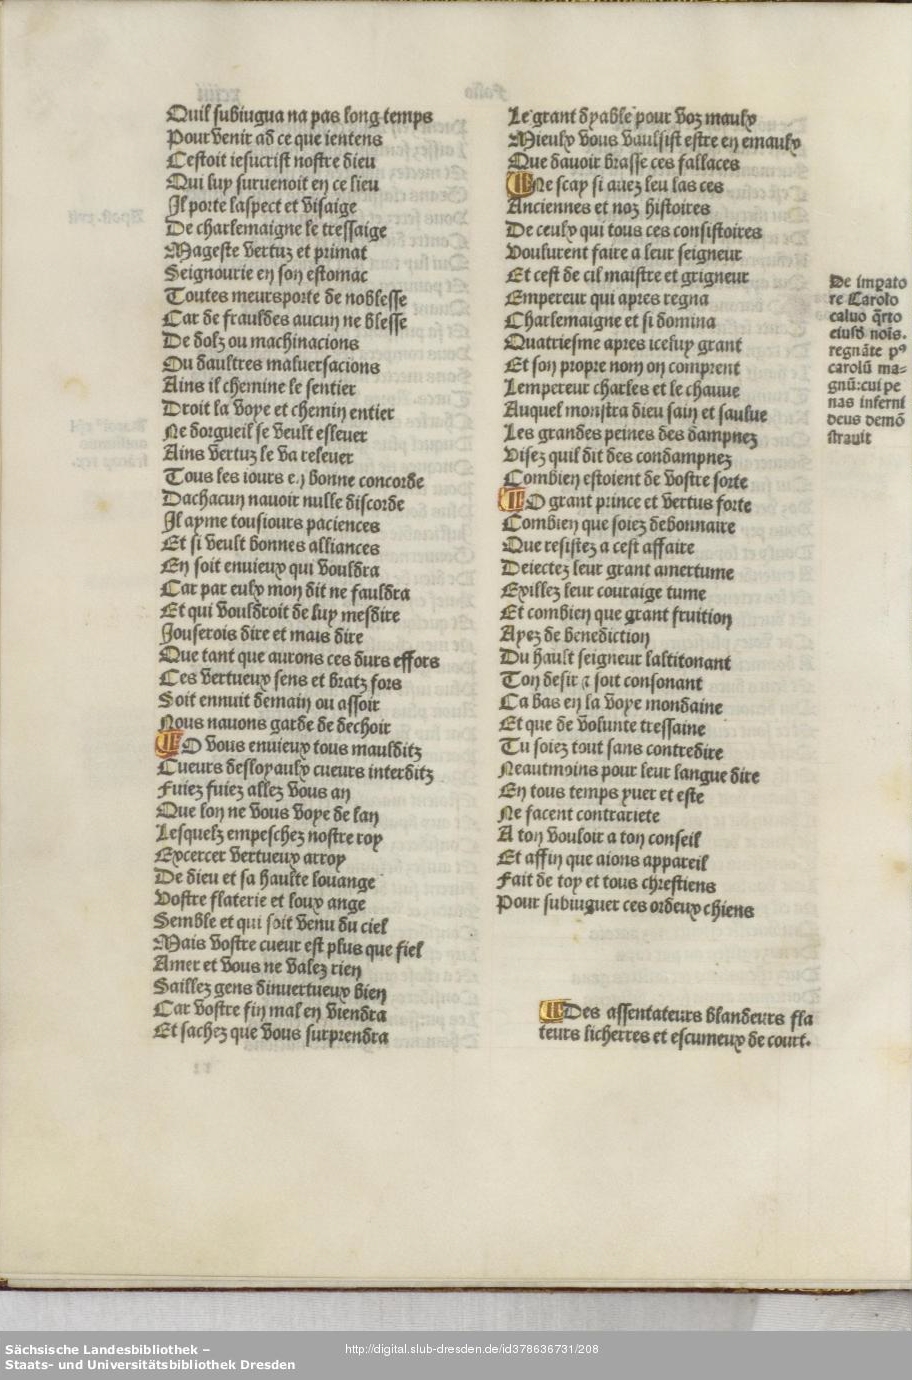 Quil subiugua na pas long temps
Pour venir ad ce que ientens
Cestoit iesucrist nostre dieu
Qui luy suruenoit en ce lieu
Il porte laspect et visaige
De charlemaigne le tressaige
Mageste vertuz et primat
Seignourie en son estomac
Toutes meurs porte de noblesse
Car de frauldes aucun ne blesse
De dolz ou machinacions
Ou daultres maluersacions
Ains il chemine le sentier
Droit la voye et chemin entier
Ne dorgueil se veult esleuer
Ains vertuz le va releuer
Tous les iours en bonne concorde
Dachacun nauoir nulle discorde
Il ayme tousiours paciences
Et si veult bonnes alliances
En soit enuieux qui vouldra
Car par eulx mon dit ne fauldra
Et qui vouldroit de luy mesdire
Iouserois dire et mais dire
Que tant que aurons ces durs effors
Ces vertueux sens et bratz fors
Soit ennuit demain ou assoir
Nous nauons garde de dechoir
O vous enuieux tous maulditz
Cueurs desloyaulx cueurs interditz
Fuiez fuiez allez vous an
Que lon ne vous voye de lan
Lesquelz empeschez nostre roy
Excercer vertueux arroy
De dieu et sa haulte louange
Vostre flaterie et loux ange
Semble et qui soit venu du ciel
Mais vostre cueur est plus que fiel
Amer et vous ne valez rien
Saillez gens dinuertueux bien
Car vostre fin mal en viendra
Et sachez que vous surprendra
Le grant dyable pour voz maulx
Mieulx vous vaulsist estre en emaulx
Que dauoir brasse ces fallaces
Ne scay si auez leu las ces
Anciennes et noz histoires
De ceulx qui tous ces consistoires
Voulurent faire a leur seigneur
Et cest de cil maistre et grigneur
Empereur qui apres regna
Charlemaigne et si domina
Quatriesme apres iceluy grant
Et son propre nom on comprent
Lempereur charles et le chauue
Auquel monstra dieu sain et saulue
Les grandes peines des dampnez
Visez quil dit des condampnez
Combien estoient de vostre sorte
O grant prince et vertus forte
Combien que soiez debonnaire
Que resistez a cest affaire
Deiectez leur grant amertume
Exillez leur couraige tume
Et combien que grant fruition
Ayez de benediction
Du hault seigneur laltitonant
Ton desir a soit consonant
Ca bas en la voye mondaine
Et que de volunte tressaine
Tu soiez tout sans contredire
Neautmoins pour leur langue dire
En tous temps yuer et este
Ne facent contrariete
A ton vouloir a ton conseil
Et affin que aions appareil
Fait de toy et tous chrestiens
Pour subiuguer ces ordeux chiens
Des assentateurs blandeurs fla
teurs licherres et escumeux de court.
De imꝑato
re Carolo
caluo q̄rto
eiusd noīs.
regnāte pꝰ
carolū ma⸗
gnū:cui pe
nas inferni
deus demō
strauit
Sächsische Landesbibliothek –
Staats- und Universitätsbibliothek Dresden
http://digital.slub-dresden.de/id378636731/208